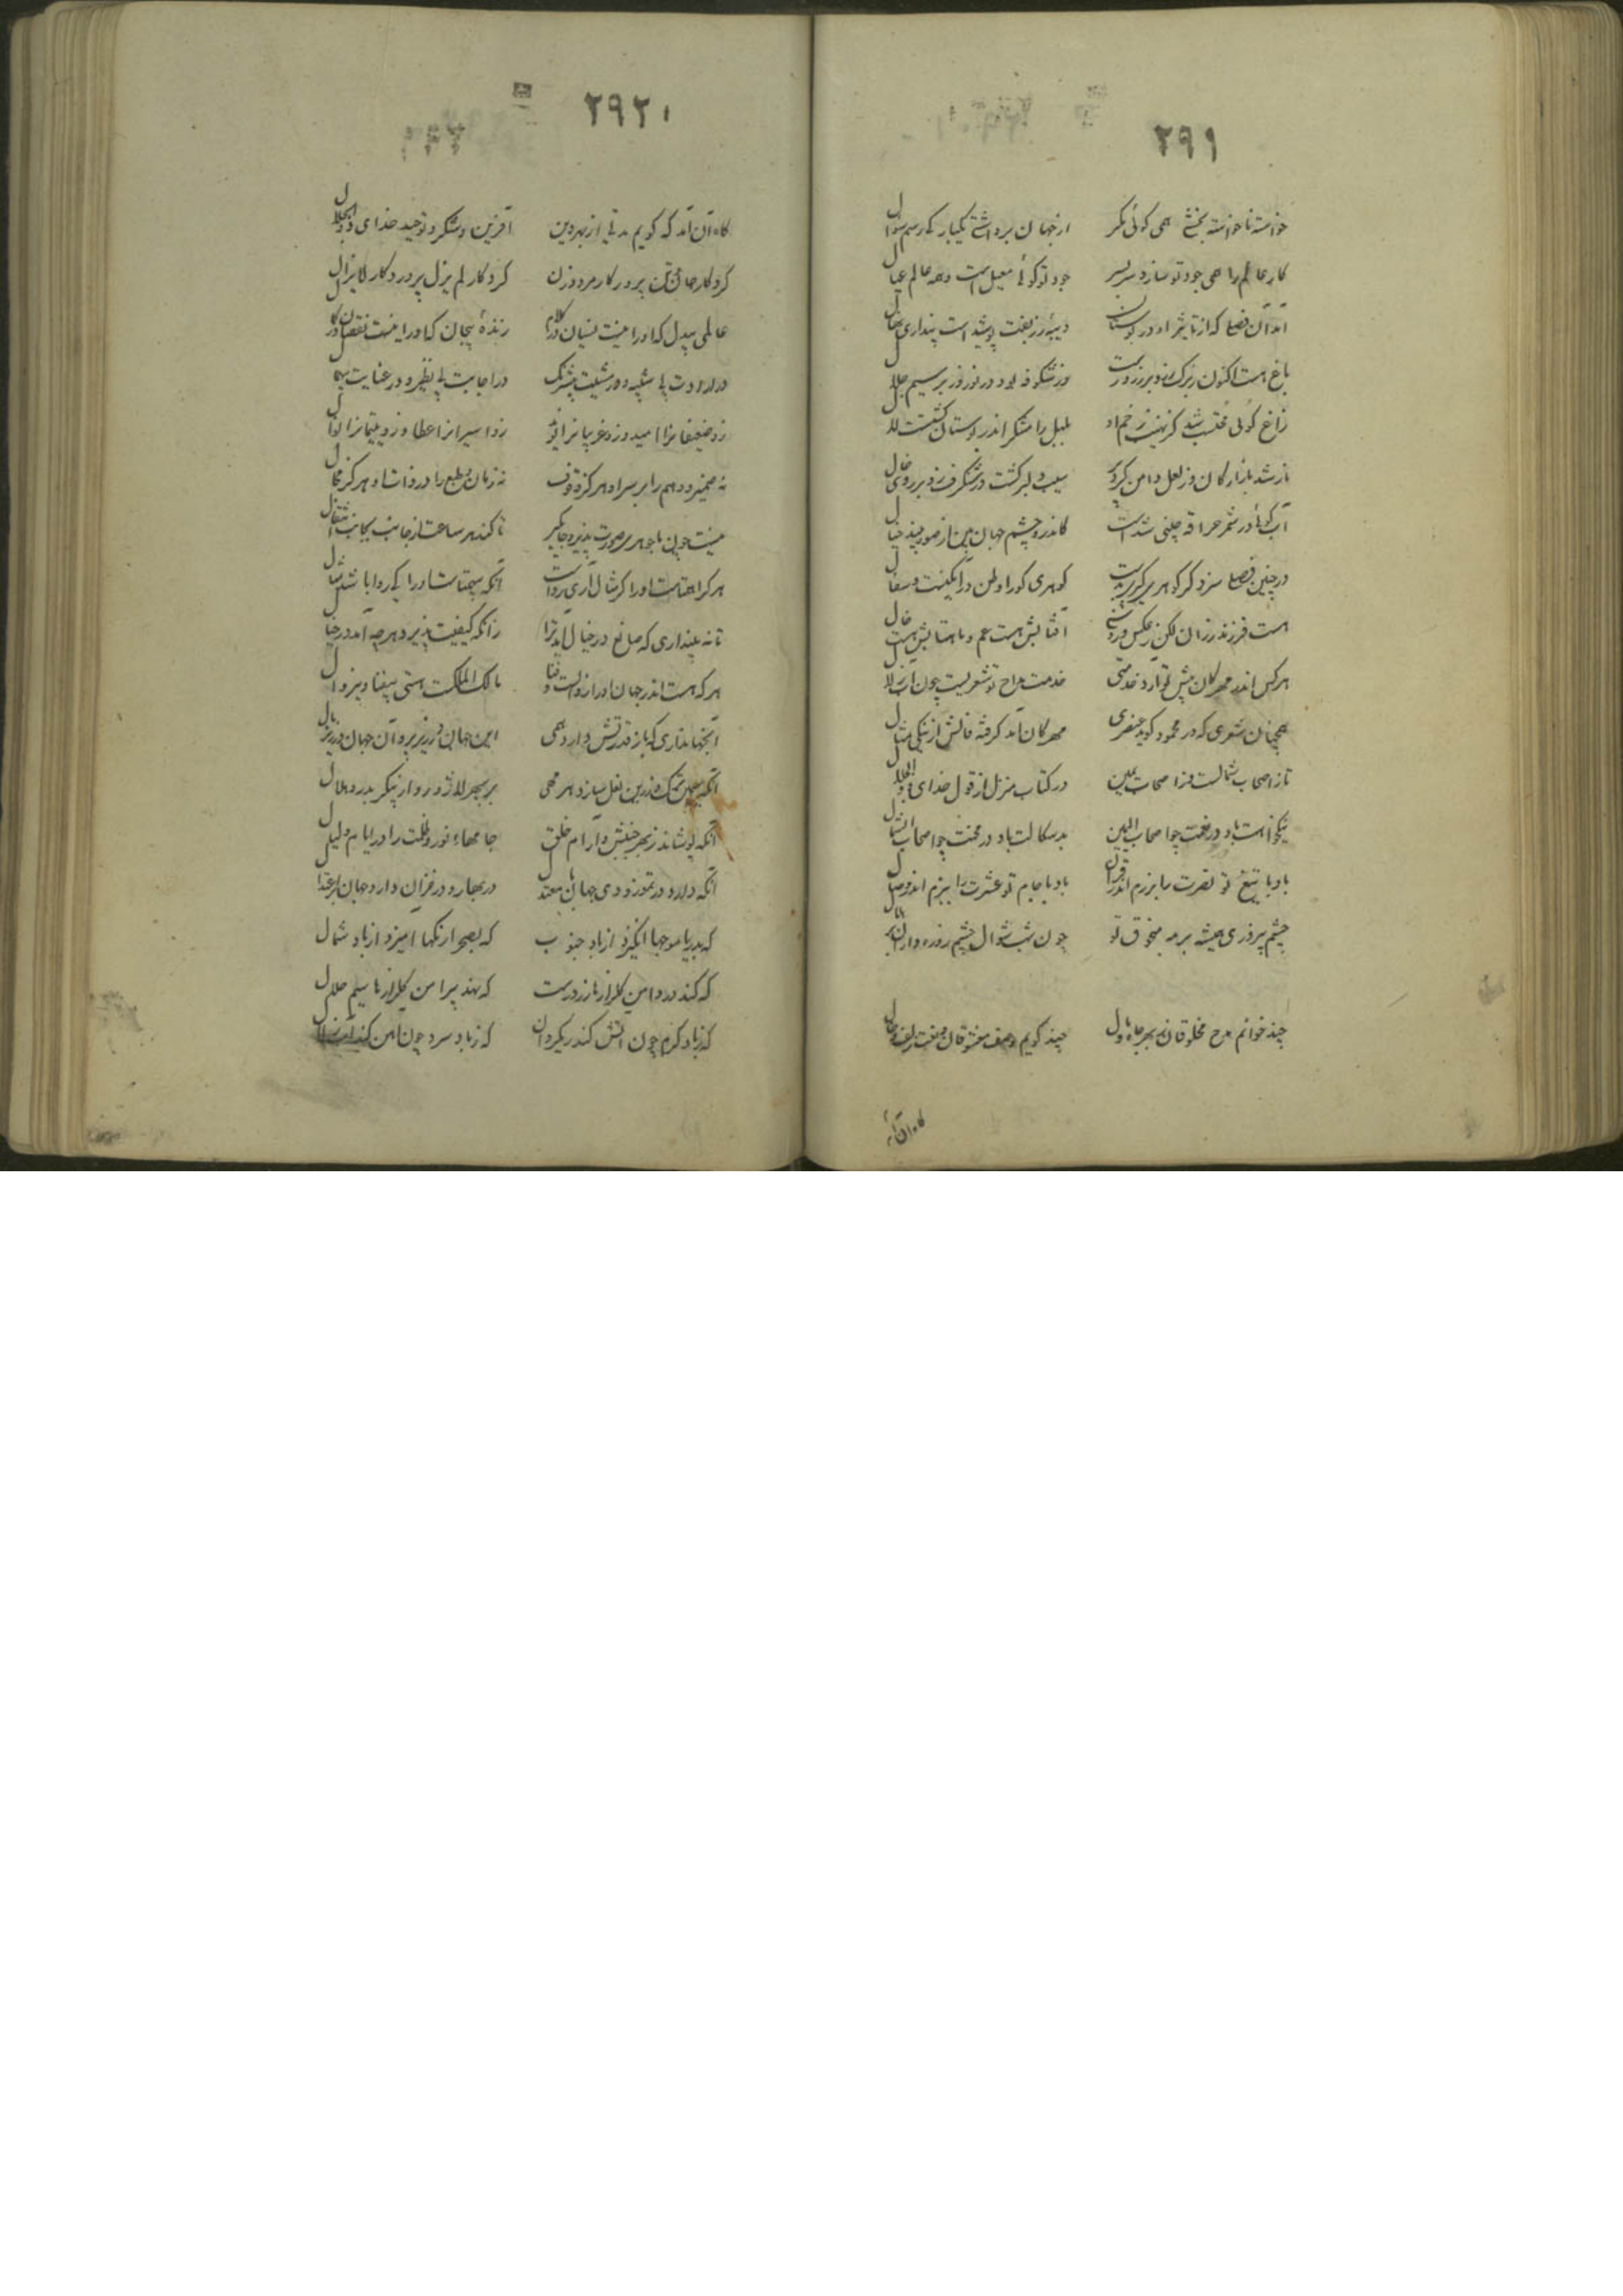 ۲۹۱
خواسته ناخواسته بخشی همی گوئی مگر از جهان برداشتی یکبارگی رسم سؤال
کار عالم را همی جود تو سازد سربسر جود تو گوئی معیل است و همه عالم عیال
آمد آن فصلی که از تاثیر او در بوستان دیبه زربفت پوشیدست پنداری
باغ هست اکنون ز برگ رز و پر زر درست وز شکوفه بود در نوروز پر سیم حلال
زاغ گوئی محتسب شد کز نهیب زخم او بلبل رامشگر اندر بوستان گشتست لال
سیب دلبر گشت و شنگرف زد بر روی خال
آب گوئی در شمر حراقه چینی شدست کاندرو چشم جهان بین از صور بیند خیال
در چنین فصلی سزد گر گوهری گیری بدست گوهری کورا وطن در آبگینست و سفال
هست فرزند رزان لیکن ز عکس و روشنی آفتابش هست عم و ماهتابش هست خال
هر کس اندر مهرگان پیش تو آرد خدمتی خدمت مداح تو شعریست چون آب زلال
همچنان شعری که در محمود گوید عنصری مهرگان آمد گرفته فالش از نیکی مثال
تا ز اصحاب شمالست و ز اصحاب یمین در کتاب منزل از قول خدای ذوالجلال
نیکخواهت باد در نعمت چو اصحاب الیمین بدسکالت باد در محنت چو اصحاب الشمال
باد با تیغ تو نصرت را برزم اندر قران باد با جام تو عشرت را ببزم اندر وصال
چشم پیروزی همیشه بر مه منجوق تو چون شب شوال چشم روزه داران بر هلال
چند خوانم مدح مخلوقان ز بهر جاه و مال چند گویم وصف معشوقان و نعت زلف و خال
گاه آن آمد
۲۹۲
گاه آن آمد که گویم مدتی از بهر دین آفرین و شکر و توحید خدای ذوالجلال
کردگار جان و تن پرور کار مرد و زن کردگار لم یزل پروردگار لایزال
عالمی بیدل که او را نیست نسیان در کلام زنده بیجان که او را نیست نقصان در کمال
در ارادت بی شبیه و در مشیت بی شریک در اجابت بی نظیر و در عنایت بی همال
زو ضعیفانرا امید و زو غریبانرا نوید زو اسیرانرا عطا و زو یتیمانرا نوال
نه ضمیر و وهم را بر سر او هرگز وقوف نه زمان و طبع را در ذات او هرگز مجال
نیست چون با جوهر صورت پذیر و جایگیر تا کند هر ساعت از جانب بجانب انتقال
هر کرا همتاست او را گر مثال آری رواست آنکه بیهمتاست او را کی روا باشد مثال
تا نه پنداری که صانع در خیال آید ترا زانکه کیفیت پذیرد هر چه آید در خیال
هر که هست اندر جهان او را زوالست و فنا مالک الملکست هستی بیفنا و بیزوال
آنجهانداری که باز قدرتش دارد همی این جهان در زیر پر و آن جهان در زیر بال
آنکه زرین نعل سازد هر مهی بر سپهر لاژورد از پیکر بدر و هلال
آنکه پوشاند ز بهر جنبش و آرام خلق جامهاء نور و ظلمت را در ایام و لیال
آنکه دارد در تموز و دی جهان معتدل در بهار و در خزان دارد جهان با اعتدال
گه بدریا موجها انگیزد از باد جنوب گه بصحرا رنگها آمیزد از باد شمال
گه کند در دامن گلزارها زر درست گه نهد پیرامن گلزارها سیم حلال
گه ز باد گرم چون آتش کند ریگ روان گه ز باد سرد چون آهن کند آب زلال